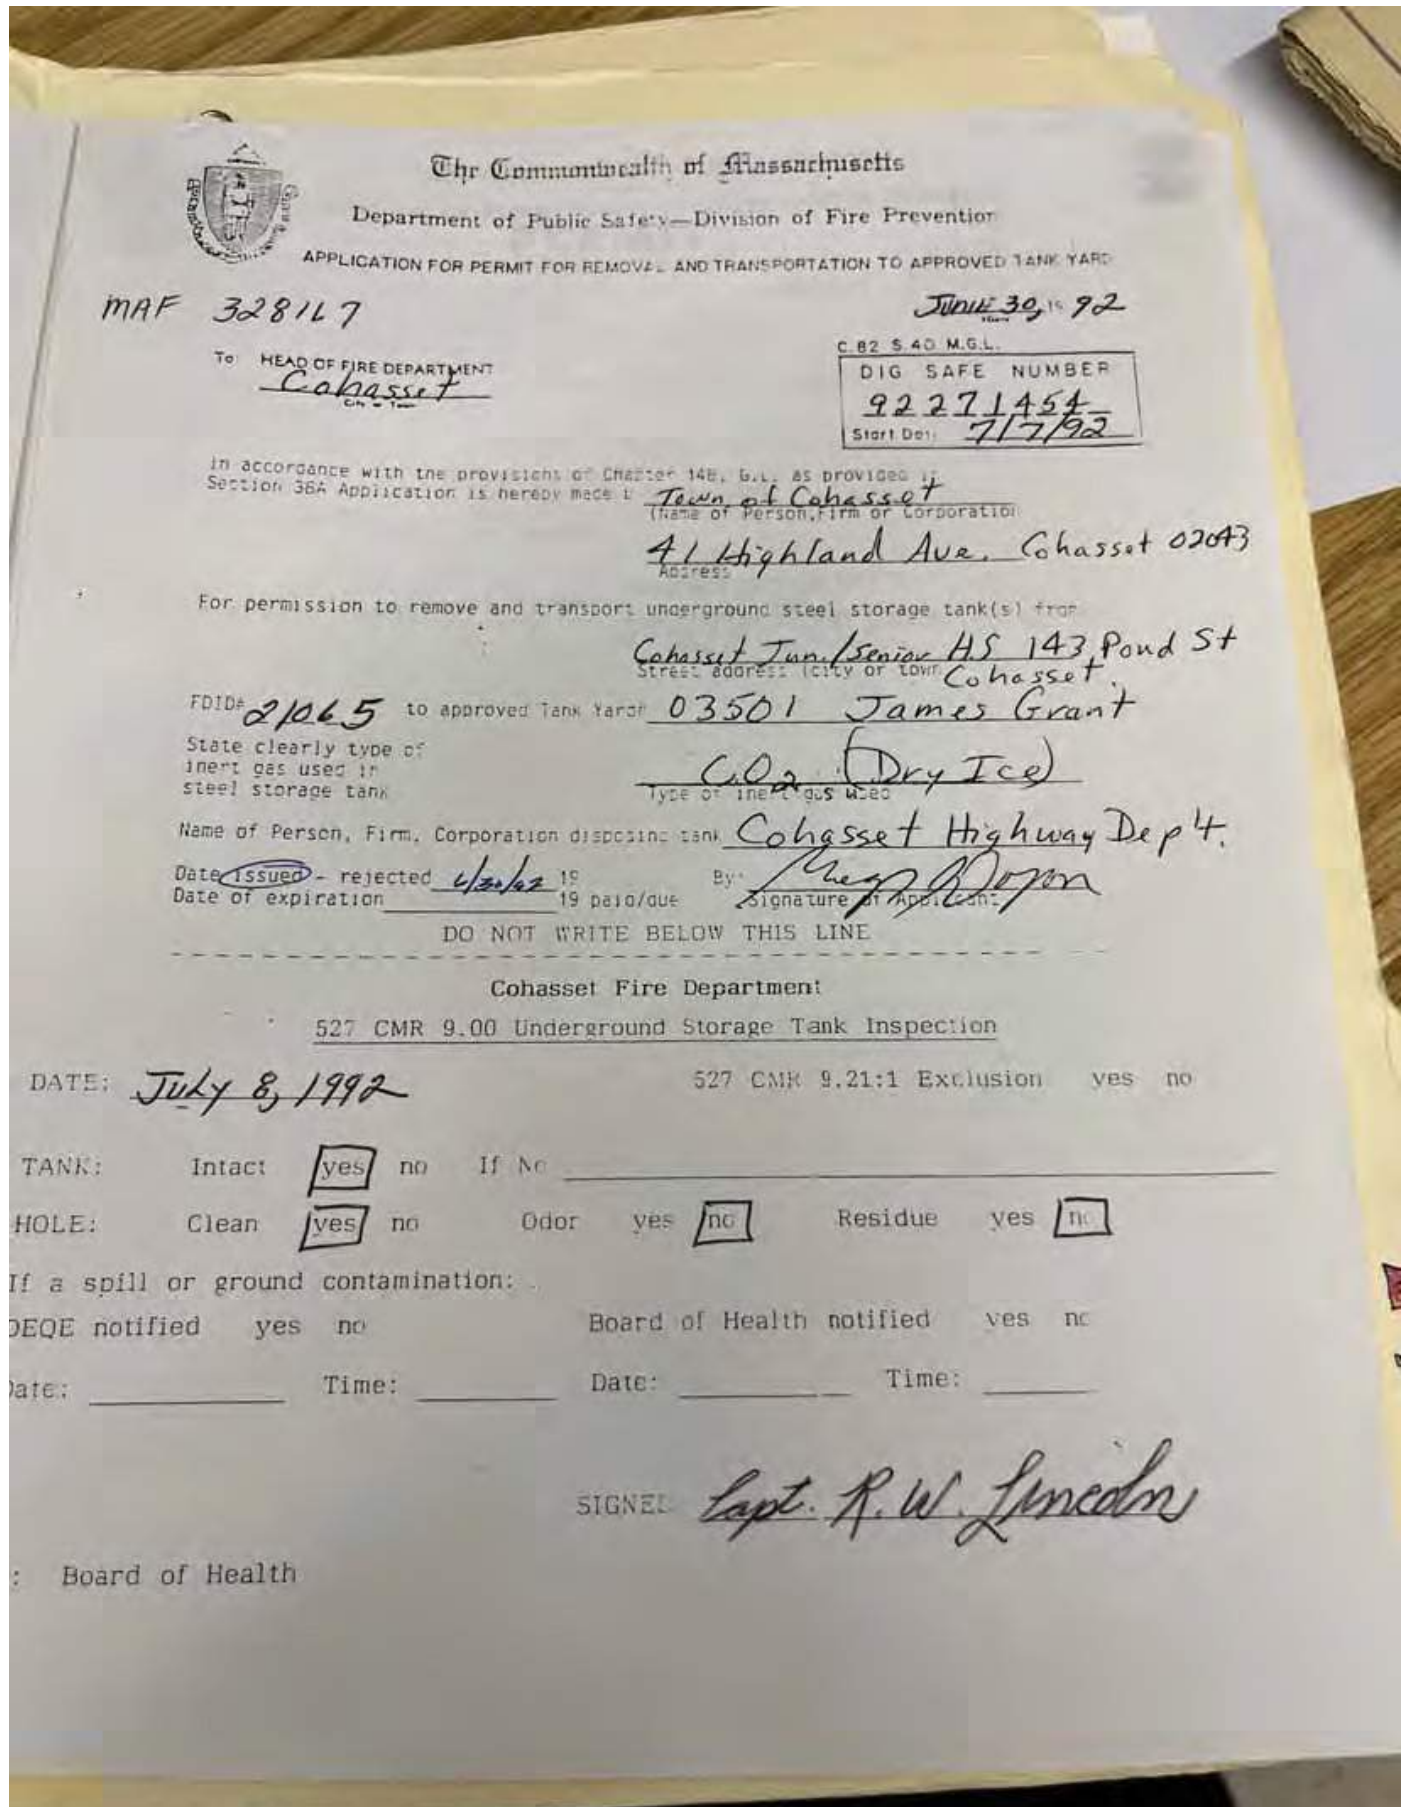 The Commonwealth of Massachusetts
Department of Public Safety—Division of Fire Prevention
APPLICATION FOR PERMIT FOR REMOVAL AND TRANSPORTATION TO APPROVED TANK YARD
MAF 328167
JUNE 30, 19 92
To: HEAD OF FIRE DEPARTMENT
Cohasset
City or Town
C.82 S.40 M.G.L.
DIG SAFE NUMBER
92271454
Start Date 7/7/92
In accordance with the provisions of Chapter 148, G.L. as provided in
Section 38A Application is hereby made Town of Cohasset
(Name of Person, Firm or Corporation
41 Highland Ave. Cohasset 02043
Address
For permission to remove and transport underground steel storage tank(s) from
Cohasset Jun./Senior H.S 143 Pond St
Street address (city or town Cohasset.
FDID# 21065 to approved Tank Yard# 03501 James Grant
State clearly type of
inert gas used in
steel storage tank
C.O2 (Dry Ice)
Type of inert gas used
Name of Person, Firm, Corporation disposing tank Cohasset Highway Dep't.
Date issued - rejected 6/30/92 19 By:
Date of expiration 19 paid/due Signature of Applicant
DO NOT WRITE BELOW THIS LINE
Cohasset Fire Department
527 CMR 9.00 Underground Storage Tank Inspection
DATE: JULY 8, 1992 527 CMR 9.21:1 Exclusion yes no
TANK: Intact yes no If No
HOLE: Clean yes no Odor yes no Residue yes no
If a spill or ground contamination:
DEQE notified yes no Board of Health notified yes no
Date: Time: Date: Time:
SIGNED Capt. R. W. Lincoln
: Board of Health